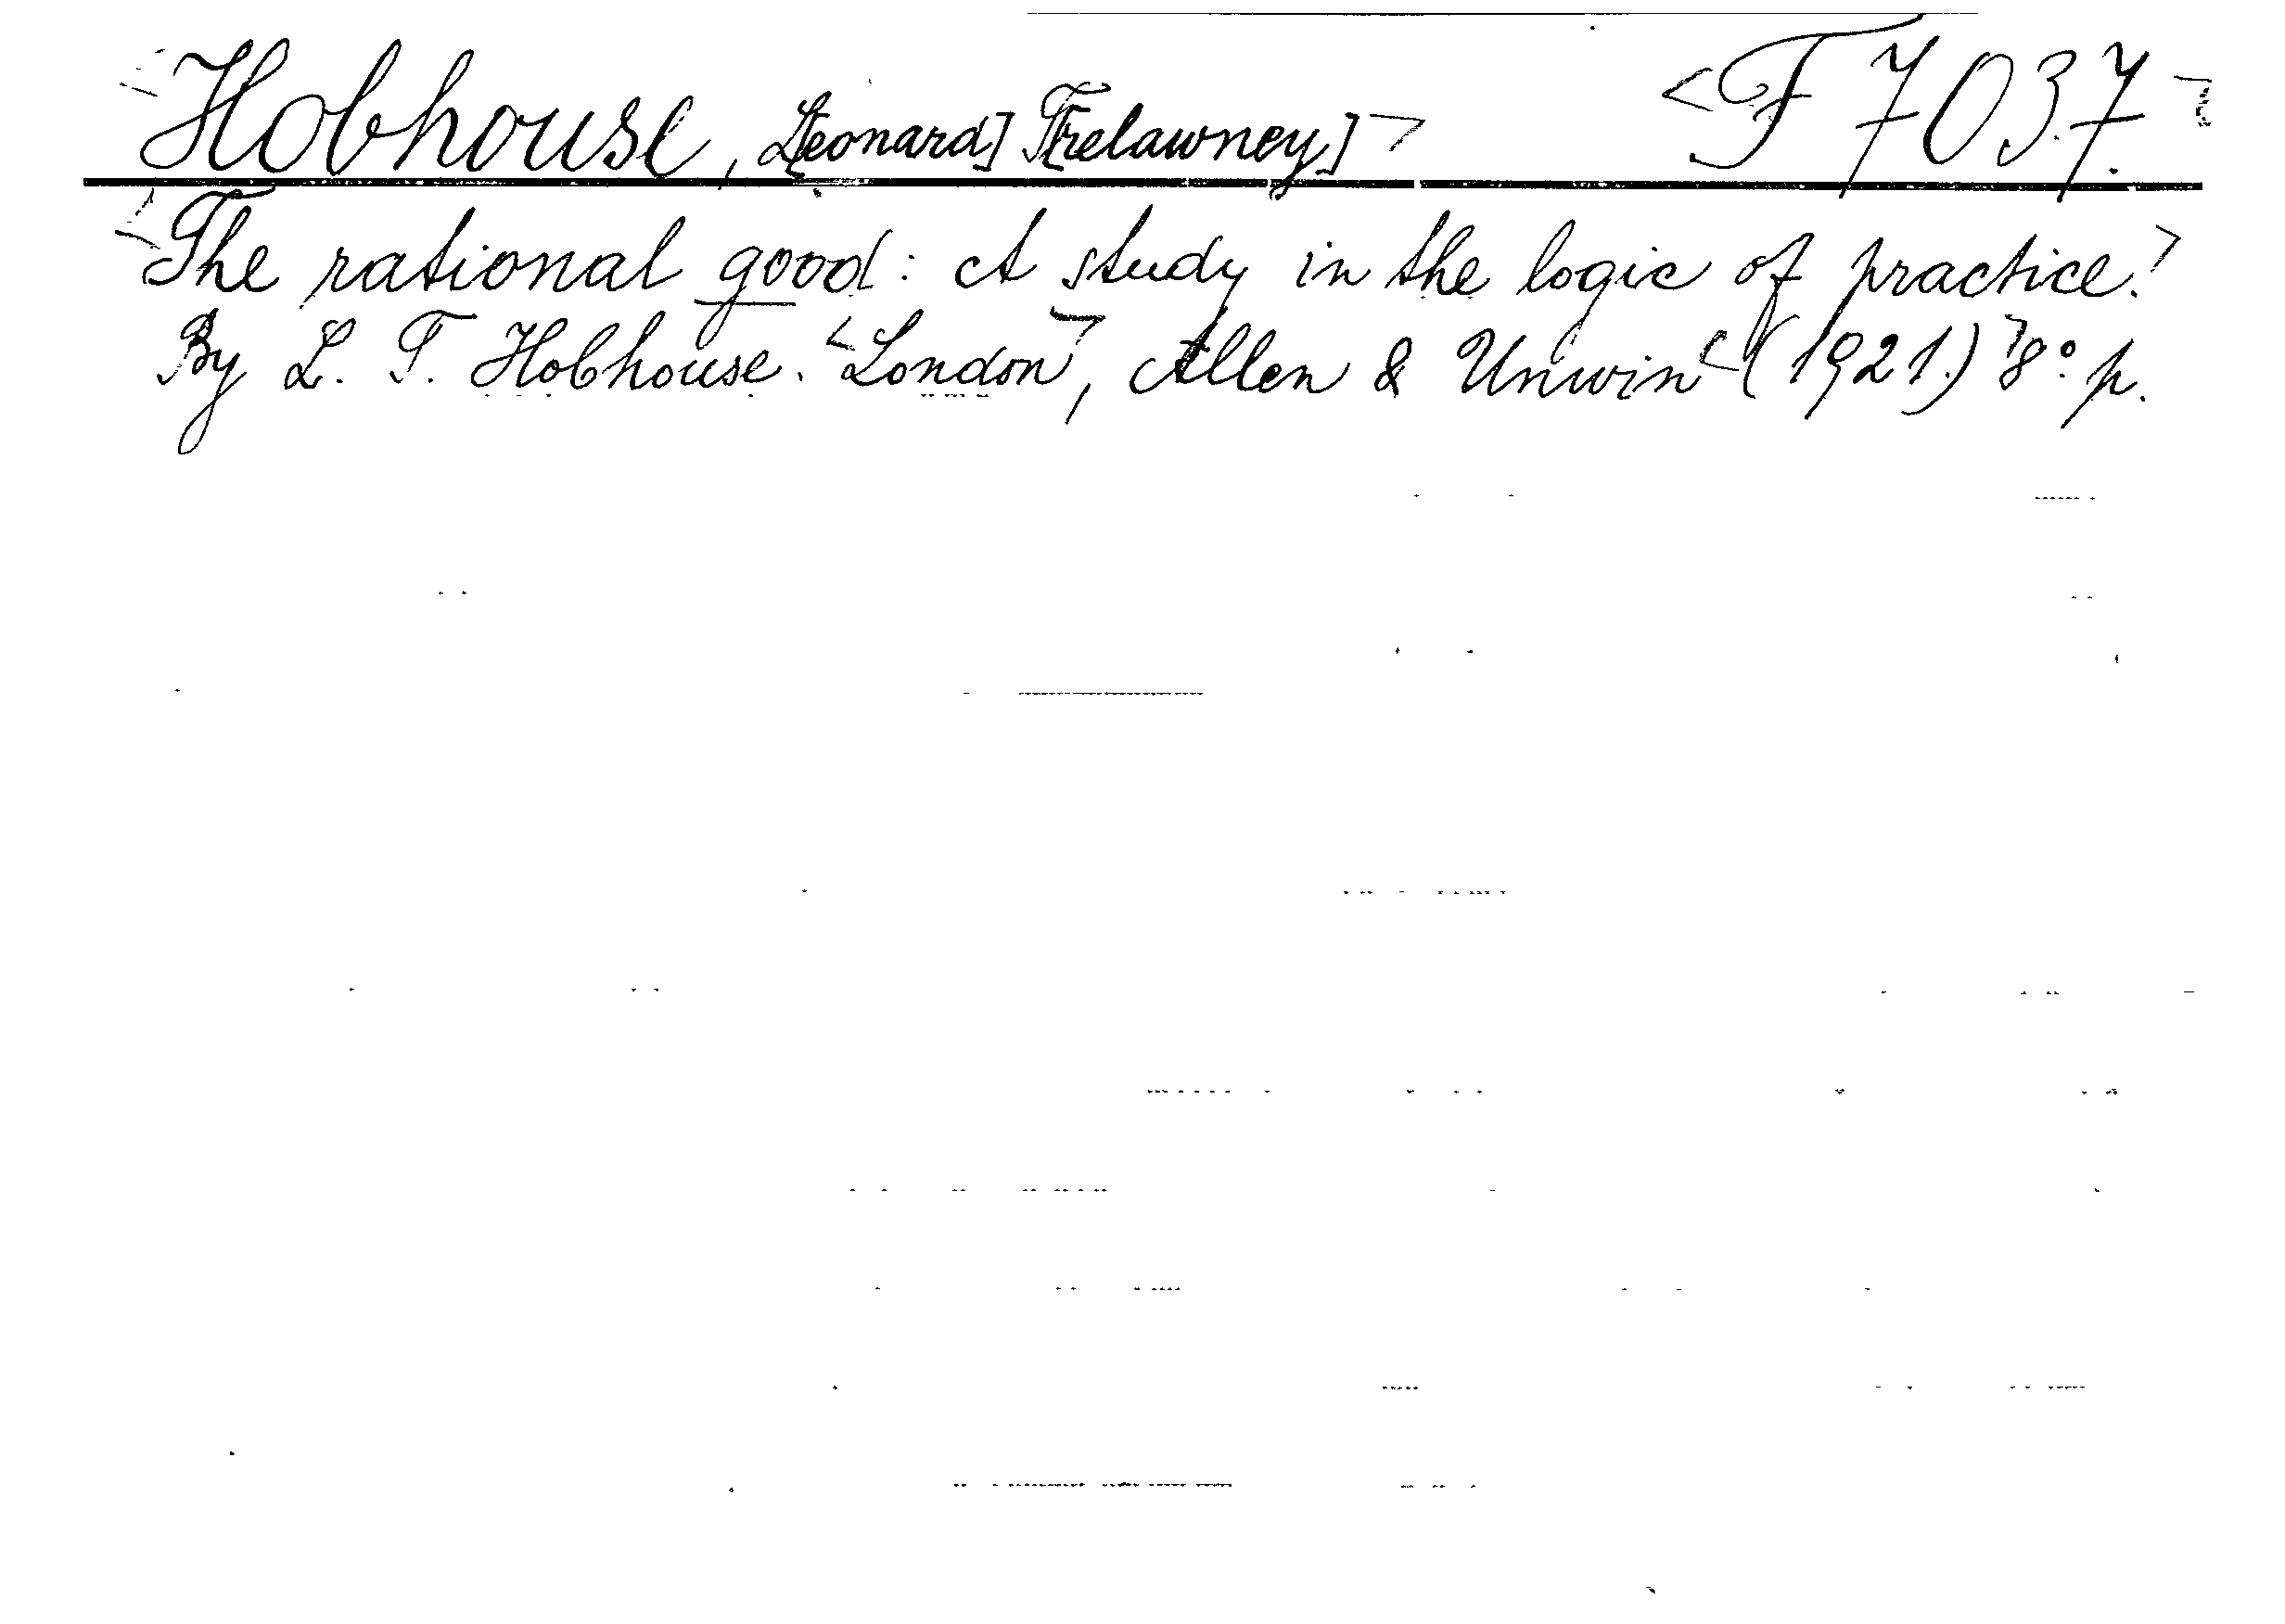 <Hobhouse, L[eonard] T[relawney]> <F 7037.>
<The rational good: A study in the logic of practice.>
By L. T. Hobhouse. <London>, Allen & Unwin <(1921.)> 8° p.